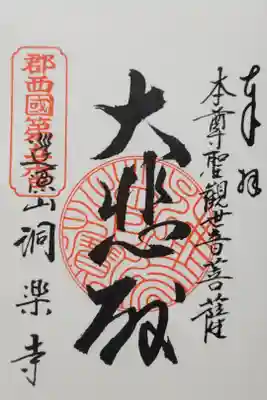 奉拜
本尊聖観世音菩薩
大悲殿
郡西國第
山洞楽寺